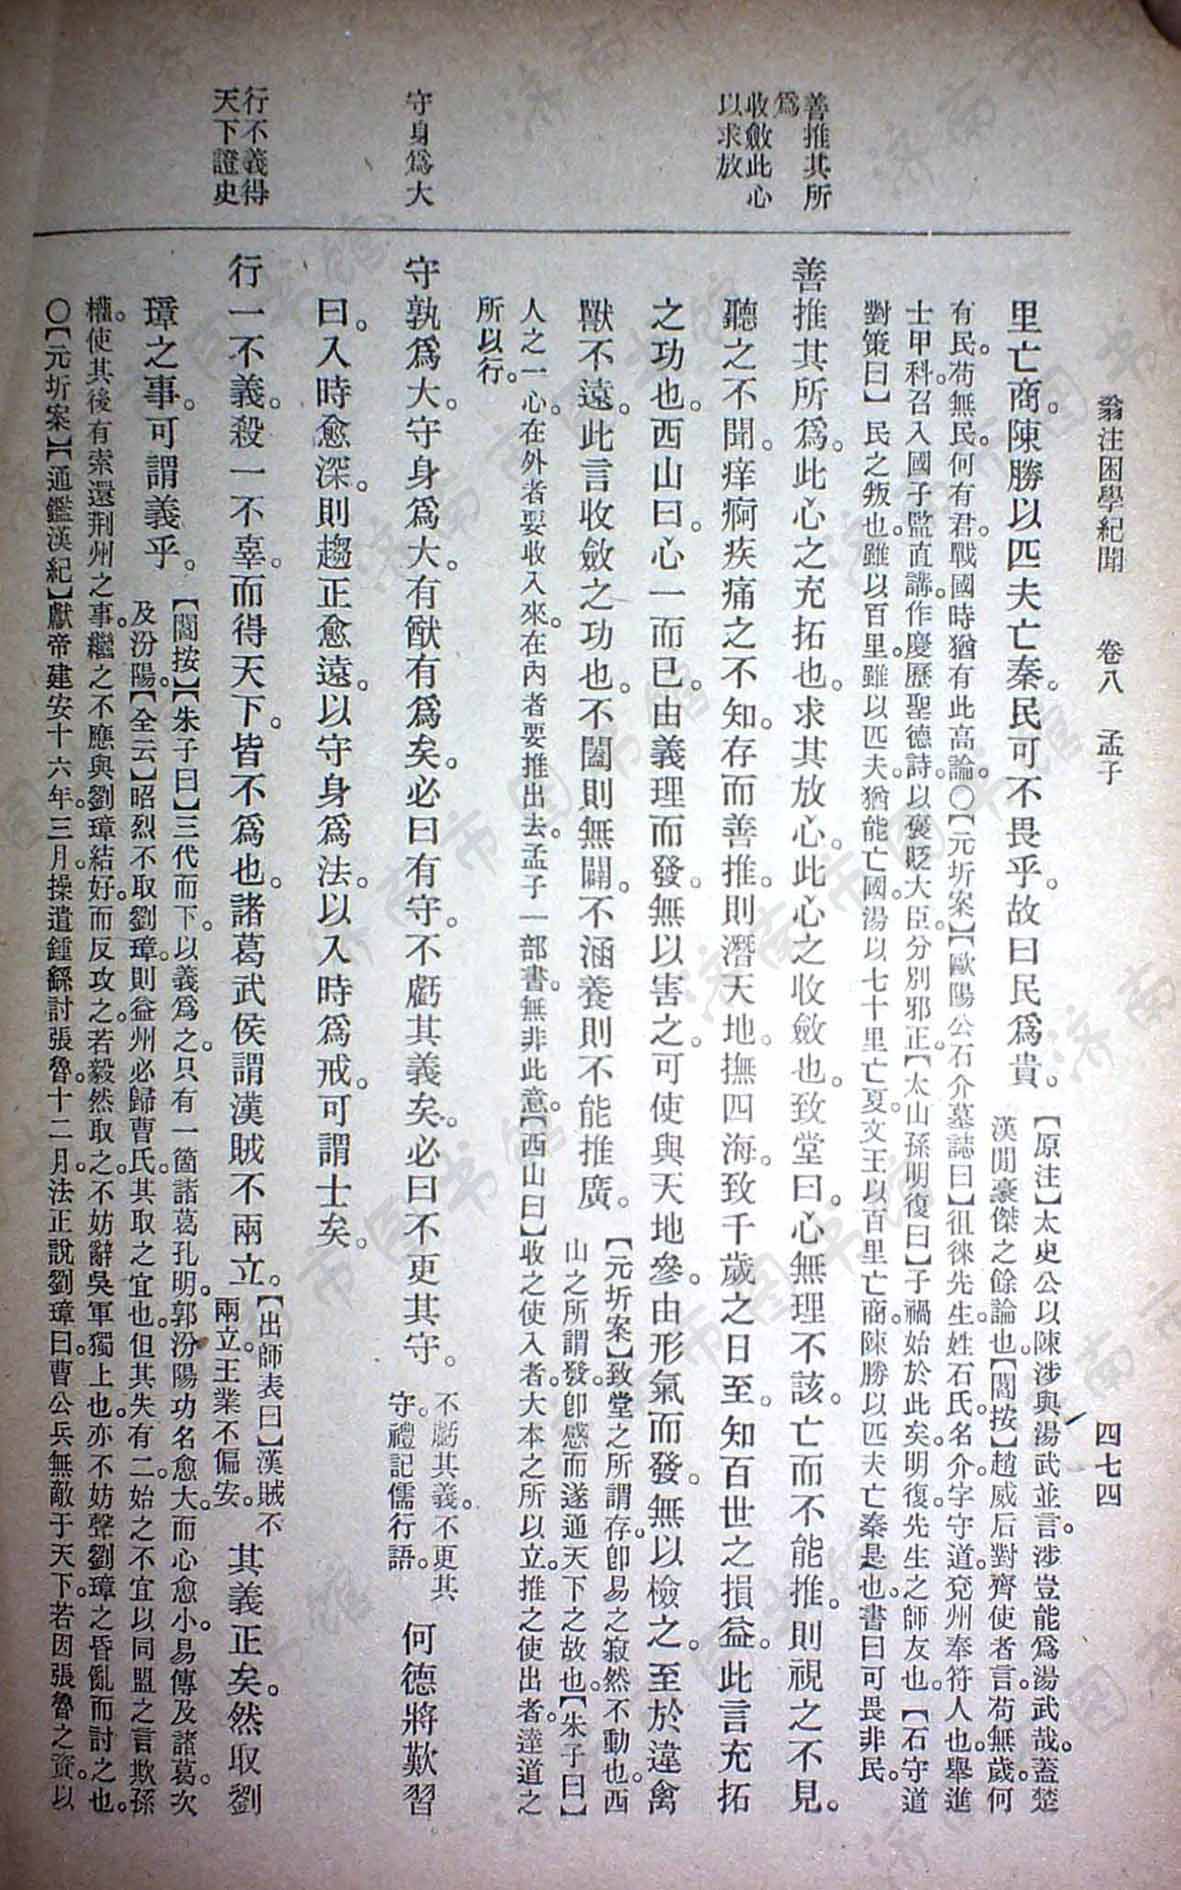 翁注困學紀聞　卷八　孟子　四七四
善推其所
爲
收斂此心
以求放
守身爲大
行不義得
天下證史
里亡商。陳勝以匹夫亡秦。民可不畏乎。故曰民爲貴。
【原注】太史公以陳涉與湯武並言。涉豈能爲湯武哉。蓋楚
漢閒豪傑之餘論也。【閻按】趙威后對齊使者言。苟無歲。何
有民。苟無民。何有君。戰國時猶有此高論。〇【元圻案】【歐陽公石介墓誌曰】徂徠先生。姓石氏。名介。字守道。兗州奉符人也。舉進
士甲科。召入國子監直講。作慶歷聖德詩。以褒貶大臣。分別邪正。【太山孫明復曰】子禍始於此矣。明復。先生之師友也。【石守道
對策曰】民之叛也。雖以百里。雖以匹夫。猶能亡國。湯以七十里亡夏。文王以百里亡商。陳勝以匹夫亡秦是也。書曰可畏非民。
善推其所爲。此心之充拓也。求其放心。此心之收斂也。致堂曰。心無理不該。亡而不能推。則視之不見。
聽之不聞。痒痾疾痛之不知。存而善推。則潛天地。撫四海。致千歲之日至。知百世之損益。此言充拓
之功也。西山曰。心一而已。由義理而發。無以害之。可使與天地參。由形氣而發。無以檢之。至於違禽
獸不遠。此言收斂之功也。不闔則無闢。不涵養則不能推廣。
【元圻案】致堂之所謂存。卽易之寂然不動也。西
山之所謂發。卽感而遂通天下之故也。【朱子曰】
人之一心。在外者要收入來。在內者要推出去。孟子一部書。無非此意。【西山曰】收之使入者。大本之所以立。推之使出者。達道之
所以行。
守孰爲大。守身爲大。有猷有爲矣。必曰有守。不虧其義矣。必曰不更其守。
不虧其義。不更其
守。禮記儒行語。
何德將歎習
曰。入時愈深。則趨正愈遠。以守身爲法。以入時爲戒。可謂士矣。
行一不義。殺一不辜。而得天下。皆不爲也。諸葛武侯謂漢賊不兩立。
【出師表曰】漢賊不
兩立。王業不偏安。
其義正矣。然取劉
璋之事。可謂義乎。
【閻按】【朱子曰】三代而下。以義爲之。只有一箇諸葛孔明。郭汾陽功名愈大。而心愈小。易傳及諸葛。次
及汾陽。【全云】昭烈不取劉璋。則益州必歸曹氏。其取之宜也。但其失有二。始之不宜以同盟之言欺孫
權。使其後有索還荆州之事。繼之不應與劉璋結好。而反攻之。若毅然取之。不妨辭吳軍獨上也。亦不妨聲劉璋之昏亂而討之也。
〇【元圻案】【通鑑漢紀】獻帝建安十六年。三月。操遣鍾繇討張魯。十二月。法正說劉璋曰。曹公兵無敵于天下。若因張魯之資。以